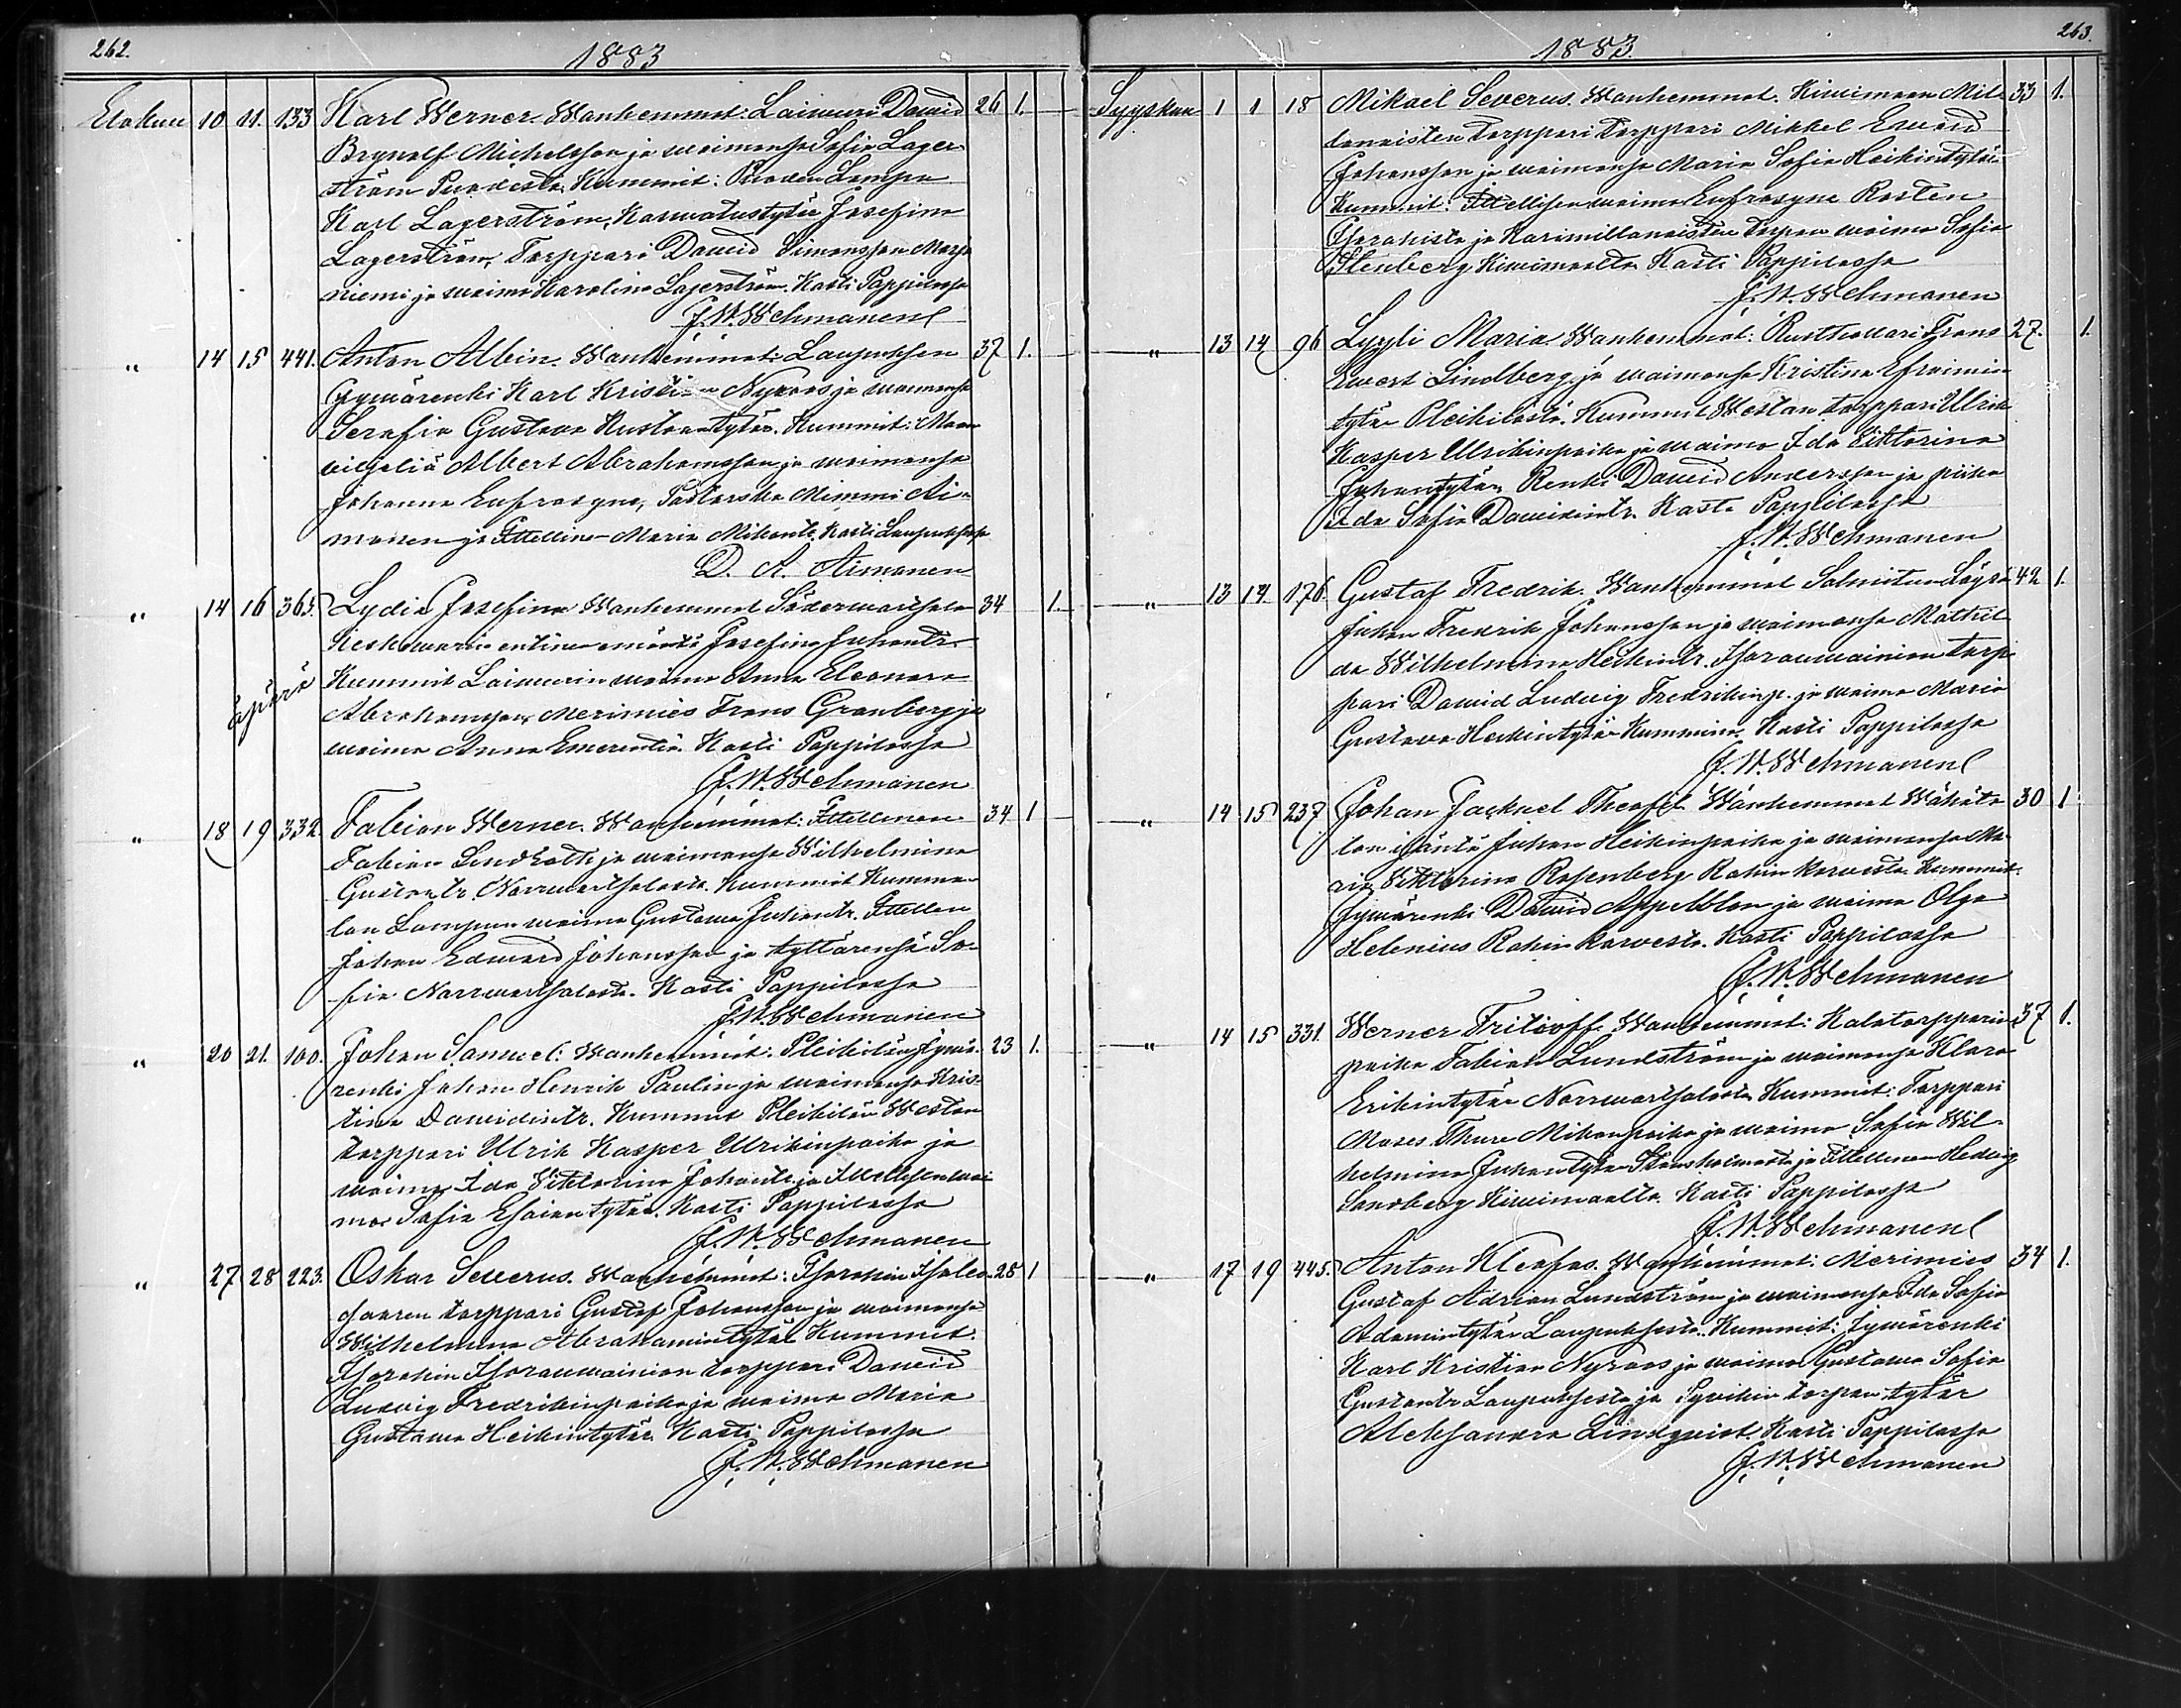 262.
1883
Elokuu 10 11. 133 Karl Werner. Wanhemmat: Laiwuri Dawid 26 1.
Brynolf Michelsson ja waimonsa Sofia Lager
ström Kummit:
Karl Lagerström, Kaswatustytär Josefina
Lagerström, Torppari Dawid Simonsson Marja
niemi ja waimo Karolina Lagerström. Kasti Pappilassa
J. W. Wehmanen
" 14 15 441. Anton Albin. Wanhemmat: Laupuksen 37 1.
Hywärenki Karl Kristian Nyroos ja waimonsa
Serafia Gustava Kustaantytär. Kummit: Maan
viljeliä Albert Abrahamsson ja waimonsa
Johanna Eufrosyne, Mimmi Ai-
manen ja Ittellinen Maria Kasti Laupuksessa
D. A. Aimanen
" 14 16 365. Lydia Josefina Wanhemmat Söderwartsala 34 1.
entinen emäntä Josefina Juhontr.
äpärä Kummit Laiwurin waimo Anna Eleonora
Abrahamsson, Merimies Frans Granberg ja
waimo Anna Emerentia. Kasti Pappilassa
J. W. Wehmanen
" 18 19 332 Fabian Werner. Wanhemmat: Ittellinen 34 1
Fabian Lindholt ja waimonsa Wilhelmina
Gustavtr. Norrwartsalasta. Kummit Kumma-
lan Lampun waimo Gustawa Juhontr. Ittellen
Johan Edward Johansson ja tyttärensä So-
fia Norrwartsalasta. Kasti Pappilassa
J. W. Wehmanen
" 20 21. 100. Johan Samuel: Wanhemmat: Pleikilän Hywä- 23 1.
renki Johan Henrik Paulin ja waimonsa Kris-
tina Dawidintr. Kummit Pleikilän Westan
torppari Ulrik Kasper Ulrikinpoika ja
waimo Ida Viktorina Johontr. ja Ittellisen wai
mo Sofia Esaiantytär. Kasti Pappilassa
J. W. Wehmanen
" 27 28 223. Oskar Severus. Wanhemmat: 28 1
torppari Gustaf Johansson ja waimonsa
Wilhelmina Abrahamintytär Kummit:
torppari Dawid
Ludvig Fredrikinpoika ja waimo Maria
Gustawa Heikintytär. Kasti Pappilassa
J. W. Wehmanen
263.
1883.
Syyskuu 1 1 18 Mikael Severus. Wanhemmat. Kiwimaan Mil- 33 1.
lanaisten torppari torppari Mikkel Edvard
Johansson ja waimonsa Maria Sofia Heikintytär
Kummit: Ittellisen waimo Eufrosyne Rosten
ja torpan waimo Sofia
Stenberg Kiwimaalta Kasti Pappilassa
J. W. Wehmanen
" 13 14 96 Lyyli Maria Wanhemmat: Rusthollari Frans 27. 1.
Ewert Lindberg ja waimonsa Kristina Efraimin
tytär Pleikilästä. Kummit Westan torppari Ulrik
Kasper Ulrikinpoika ja waimo Ida Viktorina
Juhontytär, Renki Dawid Andersson ja piika
Ida Sofia Dawidintr. Kasti Pappilassa
J. W. Wehmanen
" 13 14. 176. Gustaf Fredrik. Wanhemmat 42 1.
Juhan Fredrik Johansson ja waimonsa Mathil-
da Wilhelmina Heikintr. torp-
pari Dawid Ludvig Fredrikinp. ja waimo Maria
Gustava Heikintytär Kummina. Kasti Pappilassa
J. W. Wehmanen
" 14 15 237 Johan Theofil Wanhemmat 30 1
isäntä Juhan Heikinpoika ja waimonsa Ma-
ria Viktorina Rosenberg Kummit.
Hywärenki Dawid Appelblom ja waimo Olga
Helenius Kasti Pappilassa
J. W. Wehmanen
" 14 15 331. Werner Fritioff. Wanhemmat: 37 1.
poika Fabian Lundström ja waimonsa Klara
Erikintytär Norrwartsalasta Kummit: Torppari
Moses Thure Mikonpoika ja waimo Sofia Wil-
helmina Juhontytär ja Ittellinen Hedvig
Sandberg Kiwimaalta. Kasti Pappilassa
J. W. Wehmanen
" 17 19 445. Anton Kleofas. Wanhemmat: Merimies 34 1.
Gustaf Adrian Lundström ja waimonsa Ida Sofia
Adamintytär Laupuksesta. Kummit: Hywärenki
Karl Kristian Nyroos ja waimo Gustawa Sofia
Gustavtr Laupuksesta ja torpan tytär
Aleksandra Lindqvist. Kasti Pappilassa
J. W. Wehmanen